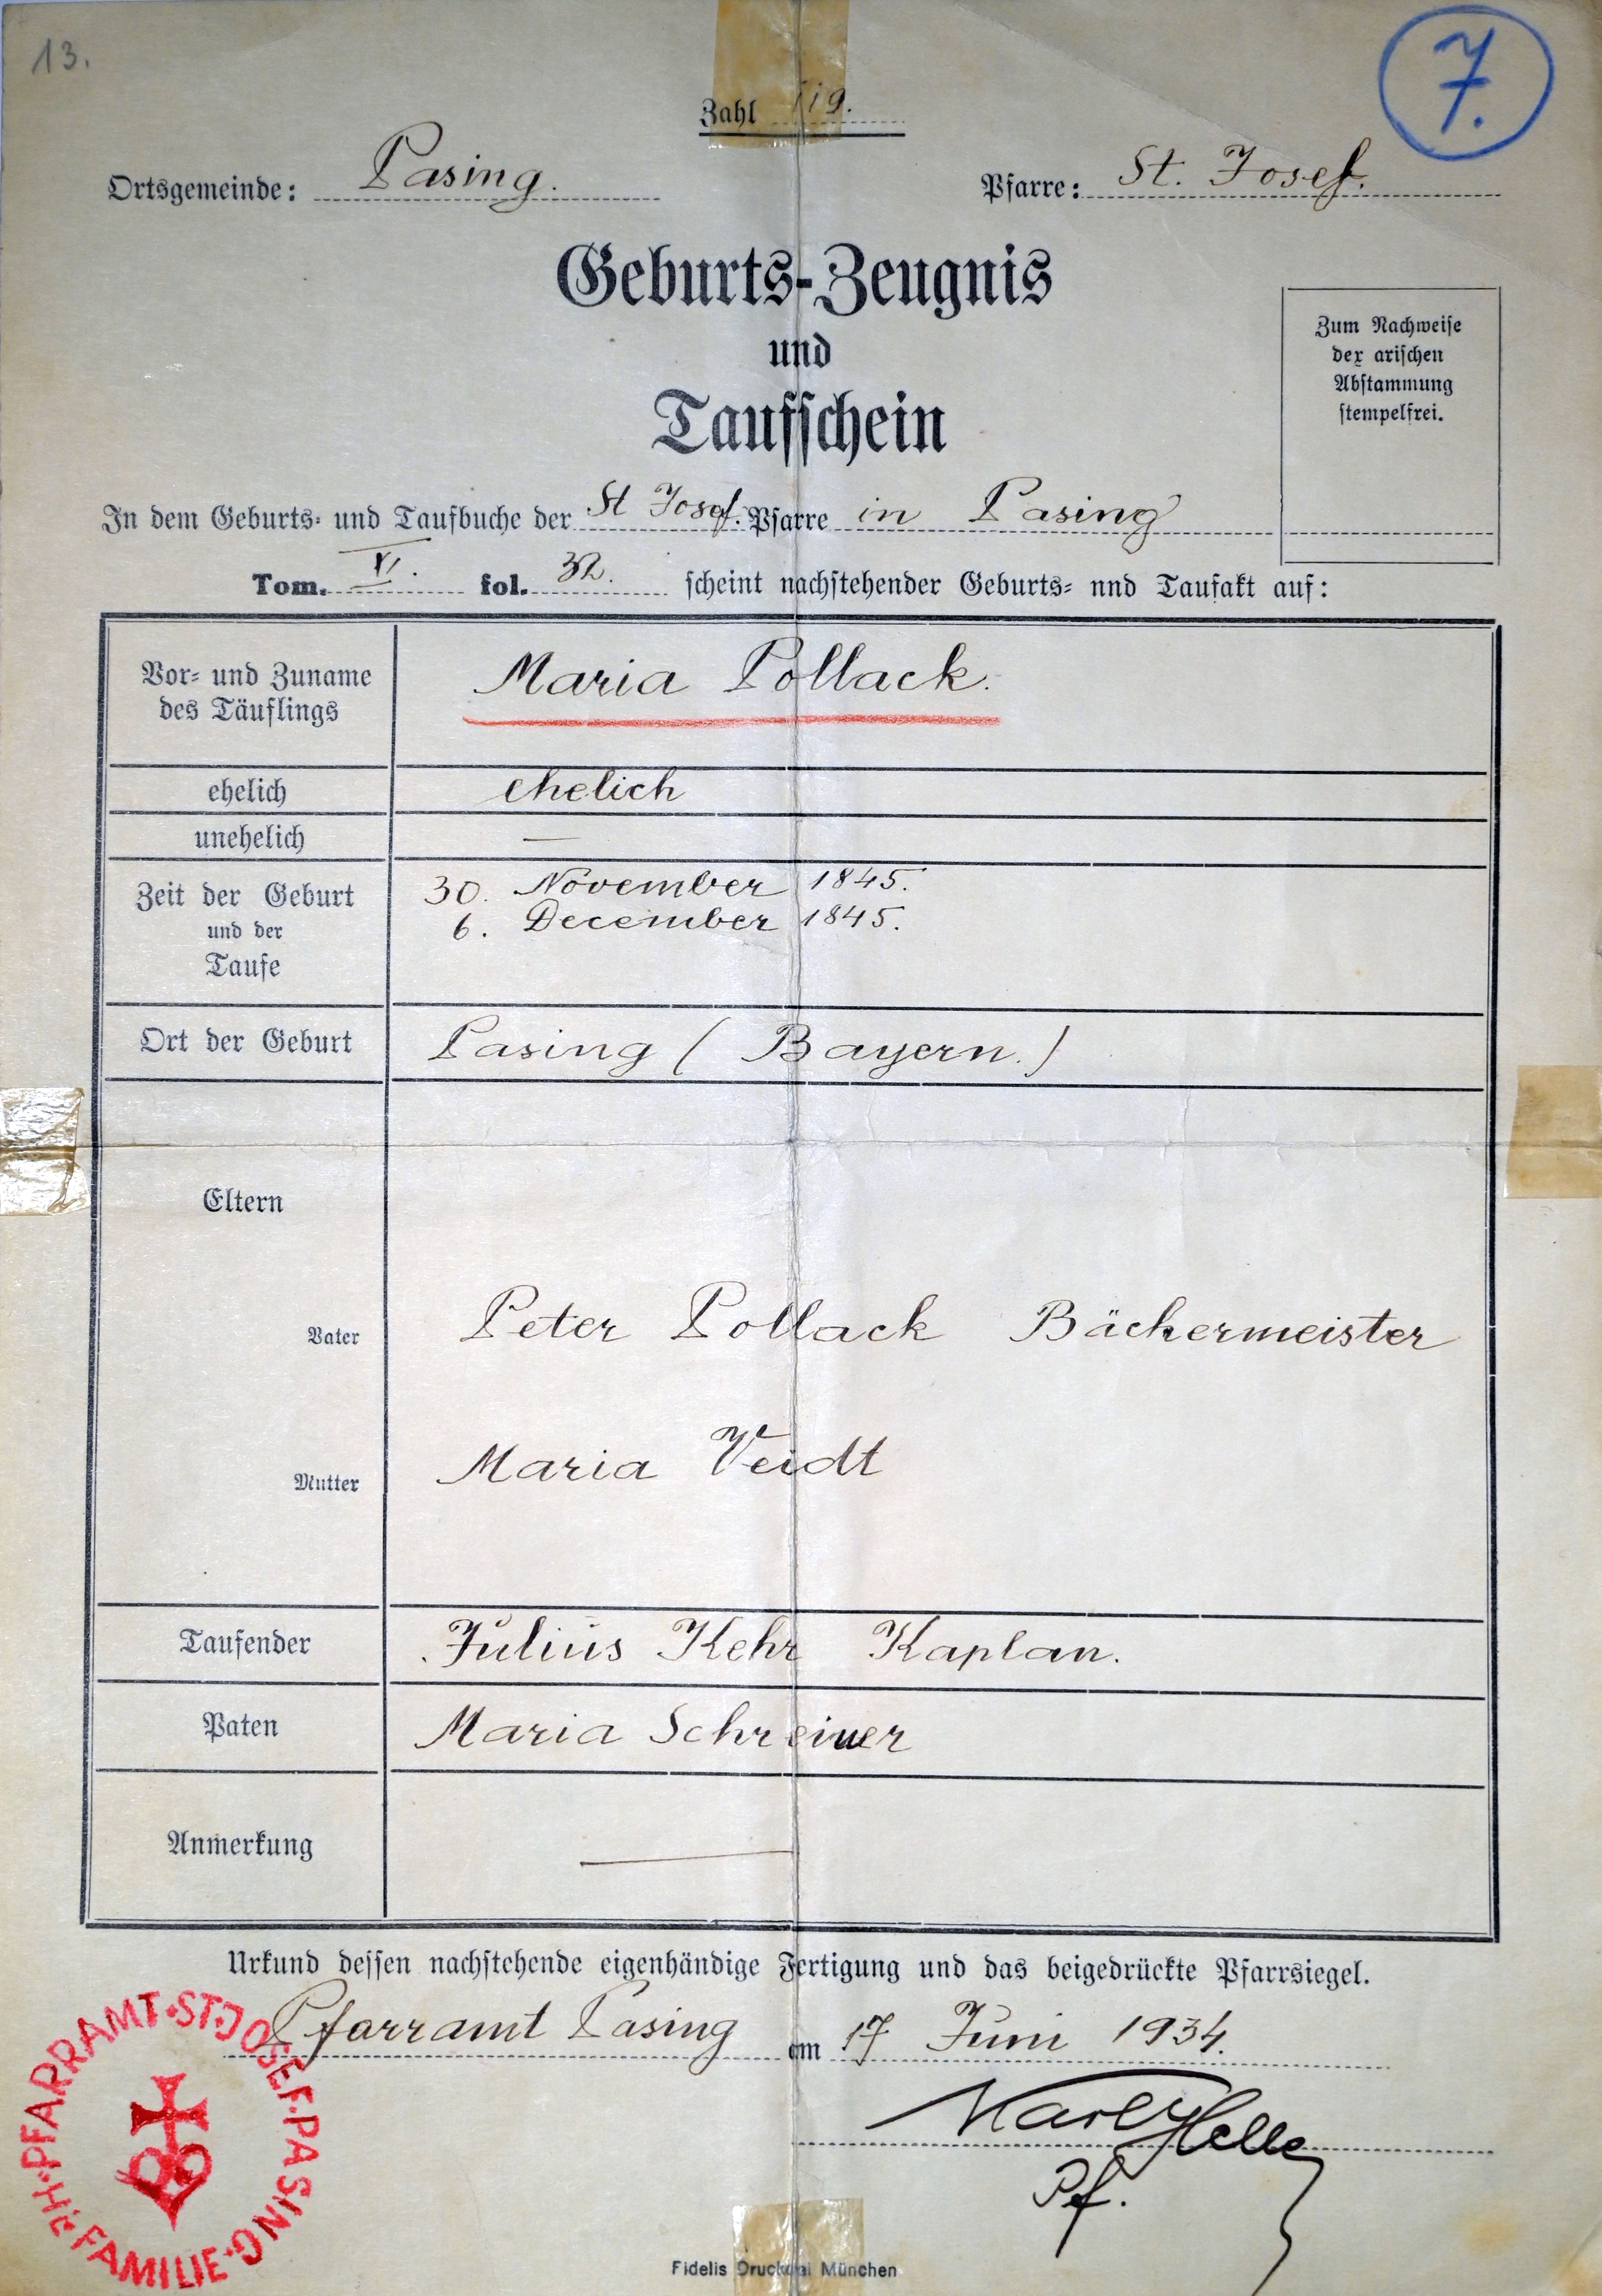 13.
7.
Zahl 119.
Ortsgemeinde: Pasing. Pfarre: St. Josef.
Geburts-Zeugnis
und
Taufschein
Zum Nachweise
der arischen
Abstammung
stempelfrei.
In dem Geburts- und Taufbuche der St Josef. Pfarre in Pasing
Tom. VI. fol. 32. scheint nachstehender Geburts- nnd Taufakt auf:
Vor- und Zuname
des Täuflings
Maria Pollack.
ehelich ehelich
unehelich —
Zeit der Geburt
und der
Taufe
30. November 1845.
6. December 1845.
Ort der Geburt Pasing (Bayern.)
Eltern
Vater Peter Pollack Bäckermeister
Mutter Maria Veidt
Taufender Julius Kehr Kaplan.
Paten Maria Schreiner
Anmerkung —
Urkund dessen nachstehende eigenhändige Fertigung und das beigedrückte Pfarrsiegel.
Pfarramt Pasing am 17 Juni 1934.
Pf.
PFARRAMT·ST·JOSEF·PASING·
FAMILIE
Fidelis Druckerei München